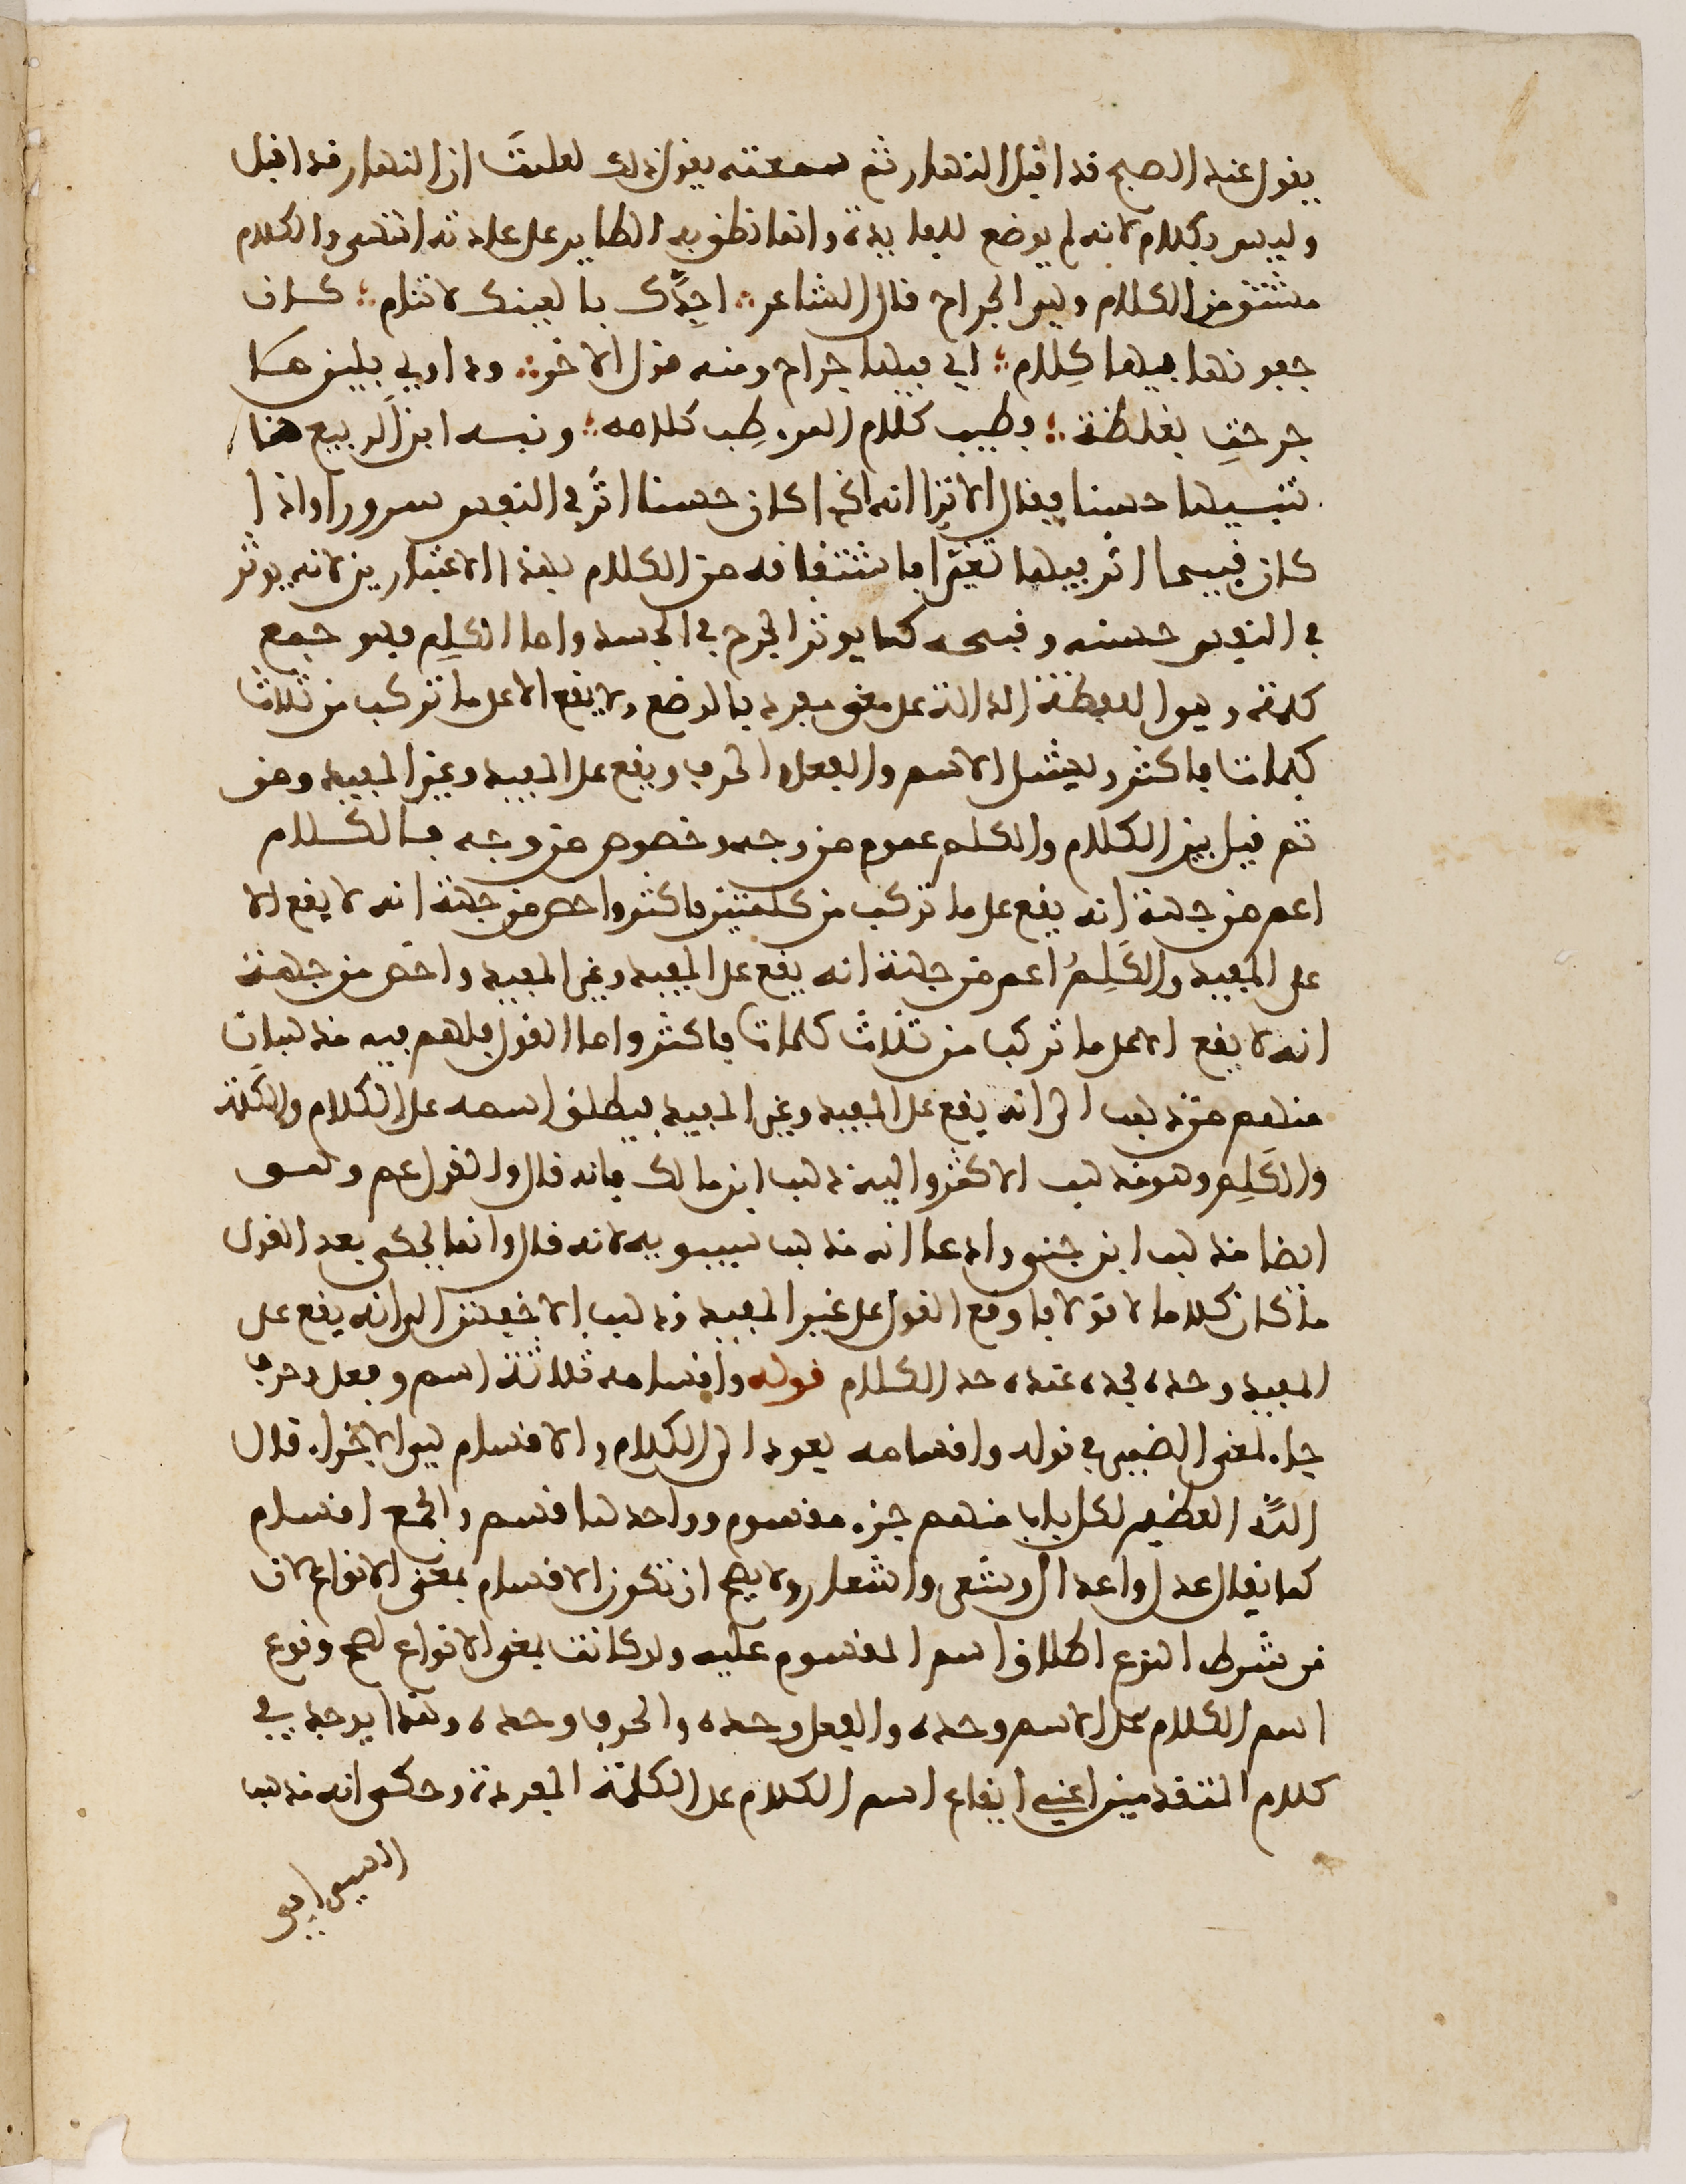 يقول عند الصبح قد اقبل النهار ثم سمعته يقول ذلك لعلمت ان النهار قد اقبل
وليس بكلام لانه لم يوضع للفايدة وانما نطق به الطاير على عادته انتهى والكلام
مشتق من الكلام وهو الجراح قال الشاعر ؞ اجدَّك ما لعينك لا تنام ؞ كان
جفونها فيها كِلام ؞ اي فيها جراح ومنه قول الاخر ؞ وداوي بلين ما
جرحتِ بغلظة ؞ فطيب كلام المرء طِب كلامه ؞ ونبه ابن ابي الربيع هنا
تنبيها حسنا فقال الا ترا انه اذا كان حسنا اثَّر في النفس سرورا واذا
كان قبيحا اثر فيها تغيّرا فاشتقاقه من الكلام بهذا الاعتبارين لانه يوثر
في النفس حسنه وقبحه كما يوثر الجرح في الجسد واما الكلِم فهو جمع
كلمة وهو اللفظة الدالة على معنى مفرد بالوضع ولا يقع الا على ما تركب من ثلاث
كلمات فاكثر ويشمل الاسم والفعل والحرف ويقع على المفيد وغير المفيد ومن
ثم قيل بين الكلام والكلم عموم من وجه وخصوص من وجه فالكلام
اعم من جهة انه يقع على ما تركب من كلمتين فاكثر واخص من جهة انه لا يقع الا
على المفيد والكَلِمُ اعم من جهة انه يقع على المفيد وغير المفيد واخص من جهة
انه لا يقع الا على ما تركب من ثلاث كلمات فاكثر واما القول فلهم فيه مذهبان
منهم من ذهب الى انه يقع على المفيد وغير المفيد فيطلق اسمه على الكلام والكلمة
والكَلِم وهو مذهب الاكثر واليه ذهب ابن مالك فانه قال والقول عم وهو
ايضا مذهب ابن جني وادعا انه مذهب سيبويه لانه قال وانما يحكى بعد القول
ما كان كلاما لا قولا فاوقع القول على غير المفيد وذهب الاخفش الى انه يقع على
المفيد وحده فحده عنده حد الكلام قوله واقسامه ثلاثة اسم وفعل وحرف
جاء لمعنى الضمير في قوله واقسامه يعود الى الكلام والاقسام هو الاجزاء قال
الله العظيم لكل باب منهم جزء مقسوم وواحدها قسم والجمع اقسام
كما يقال عدل واعدال وشعر واشعار ولا يصح ان تكون الاقسام بمعنى الانواع لان
من شرط النوع اطلاق اسم المقسوم عليه ولو كانت بمعنى الانواع لصح وقوع
اسم الكلام على الاسم وحده والفعل وحده والحرف وحده وهذا يوجد في
كلام المتقدمين اعني ايقاع اسم الكلام على الكلمة المفردة وحكى انه مذهب